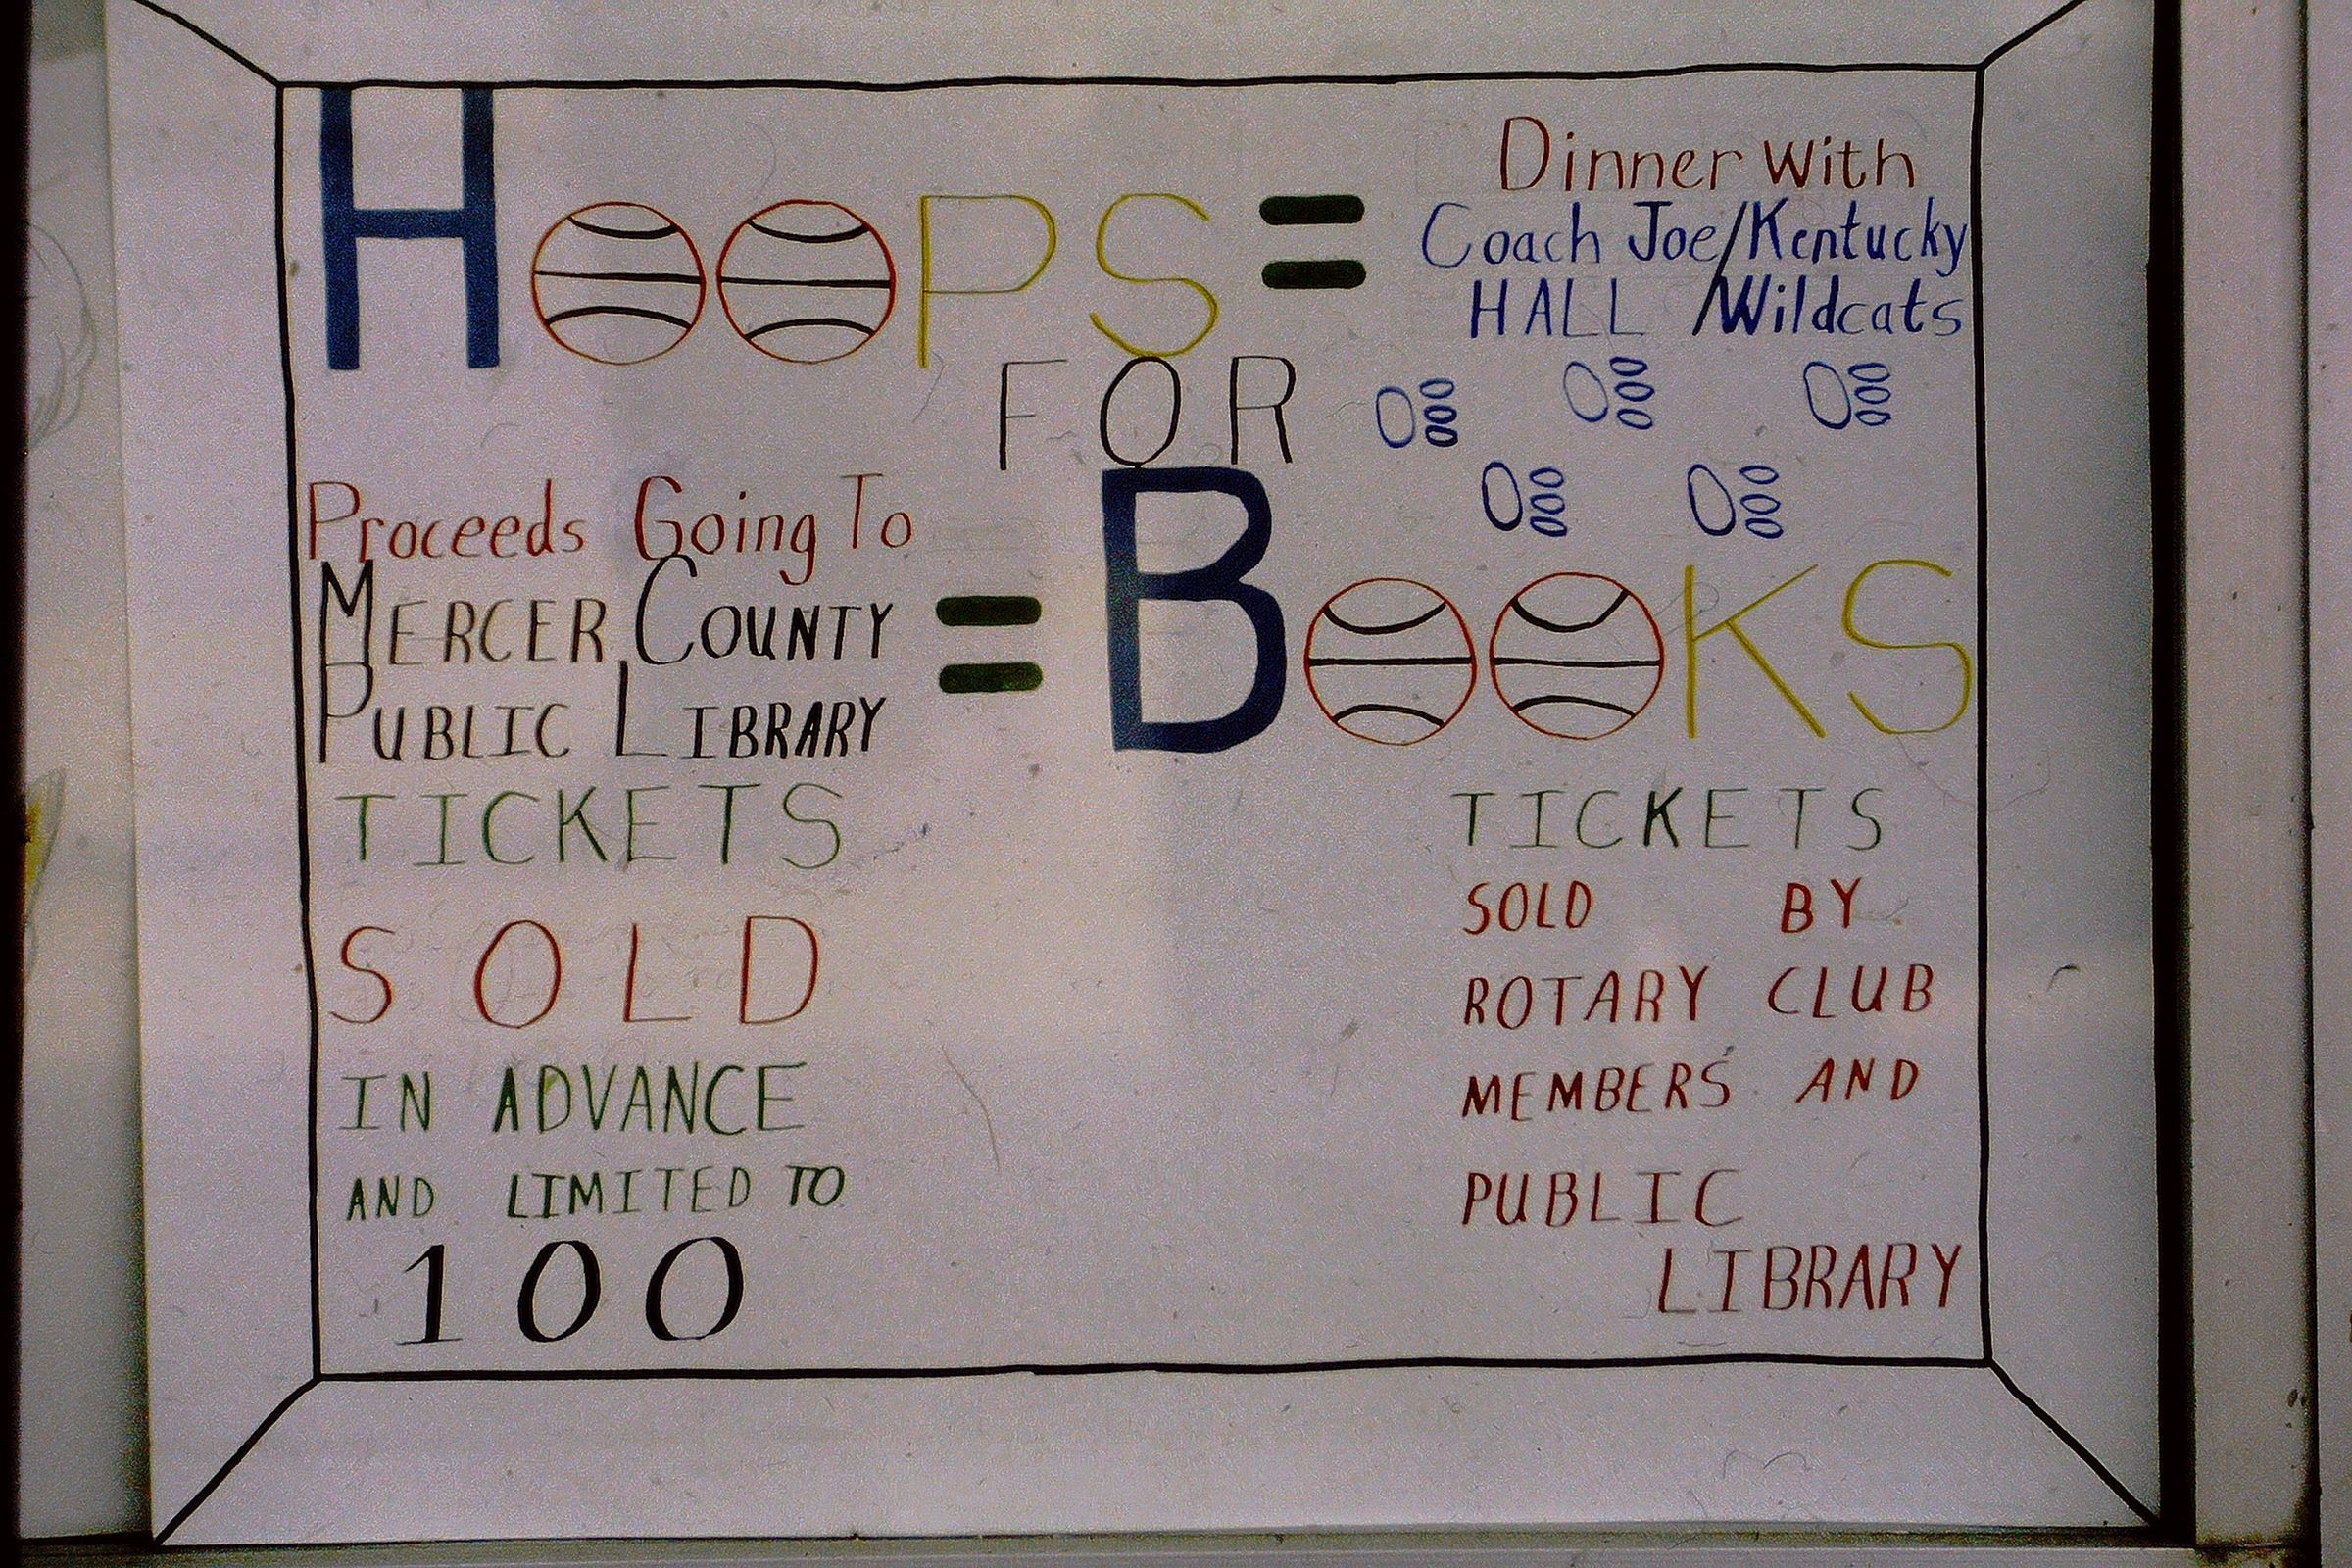 HOOPS =
Dinner With
Coach Joe/Kentucky
HALL /Wildcats
FOR
Proceeds Going To
MERCER COUNTY
PUBLIC LIBRARY
= BOOKS
TICKETS
SOLD
IN ADVANCE
AND LIMITED TO
100
TICKETS
SOLD BY
ROTARY CLUB
MEMBERS AND
PUBLIC
LIBRARY